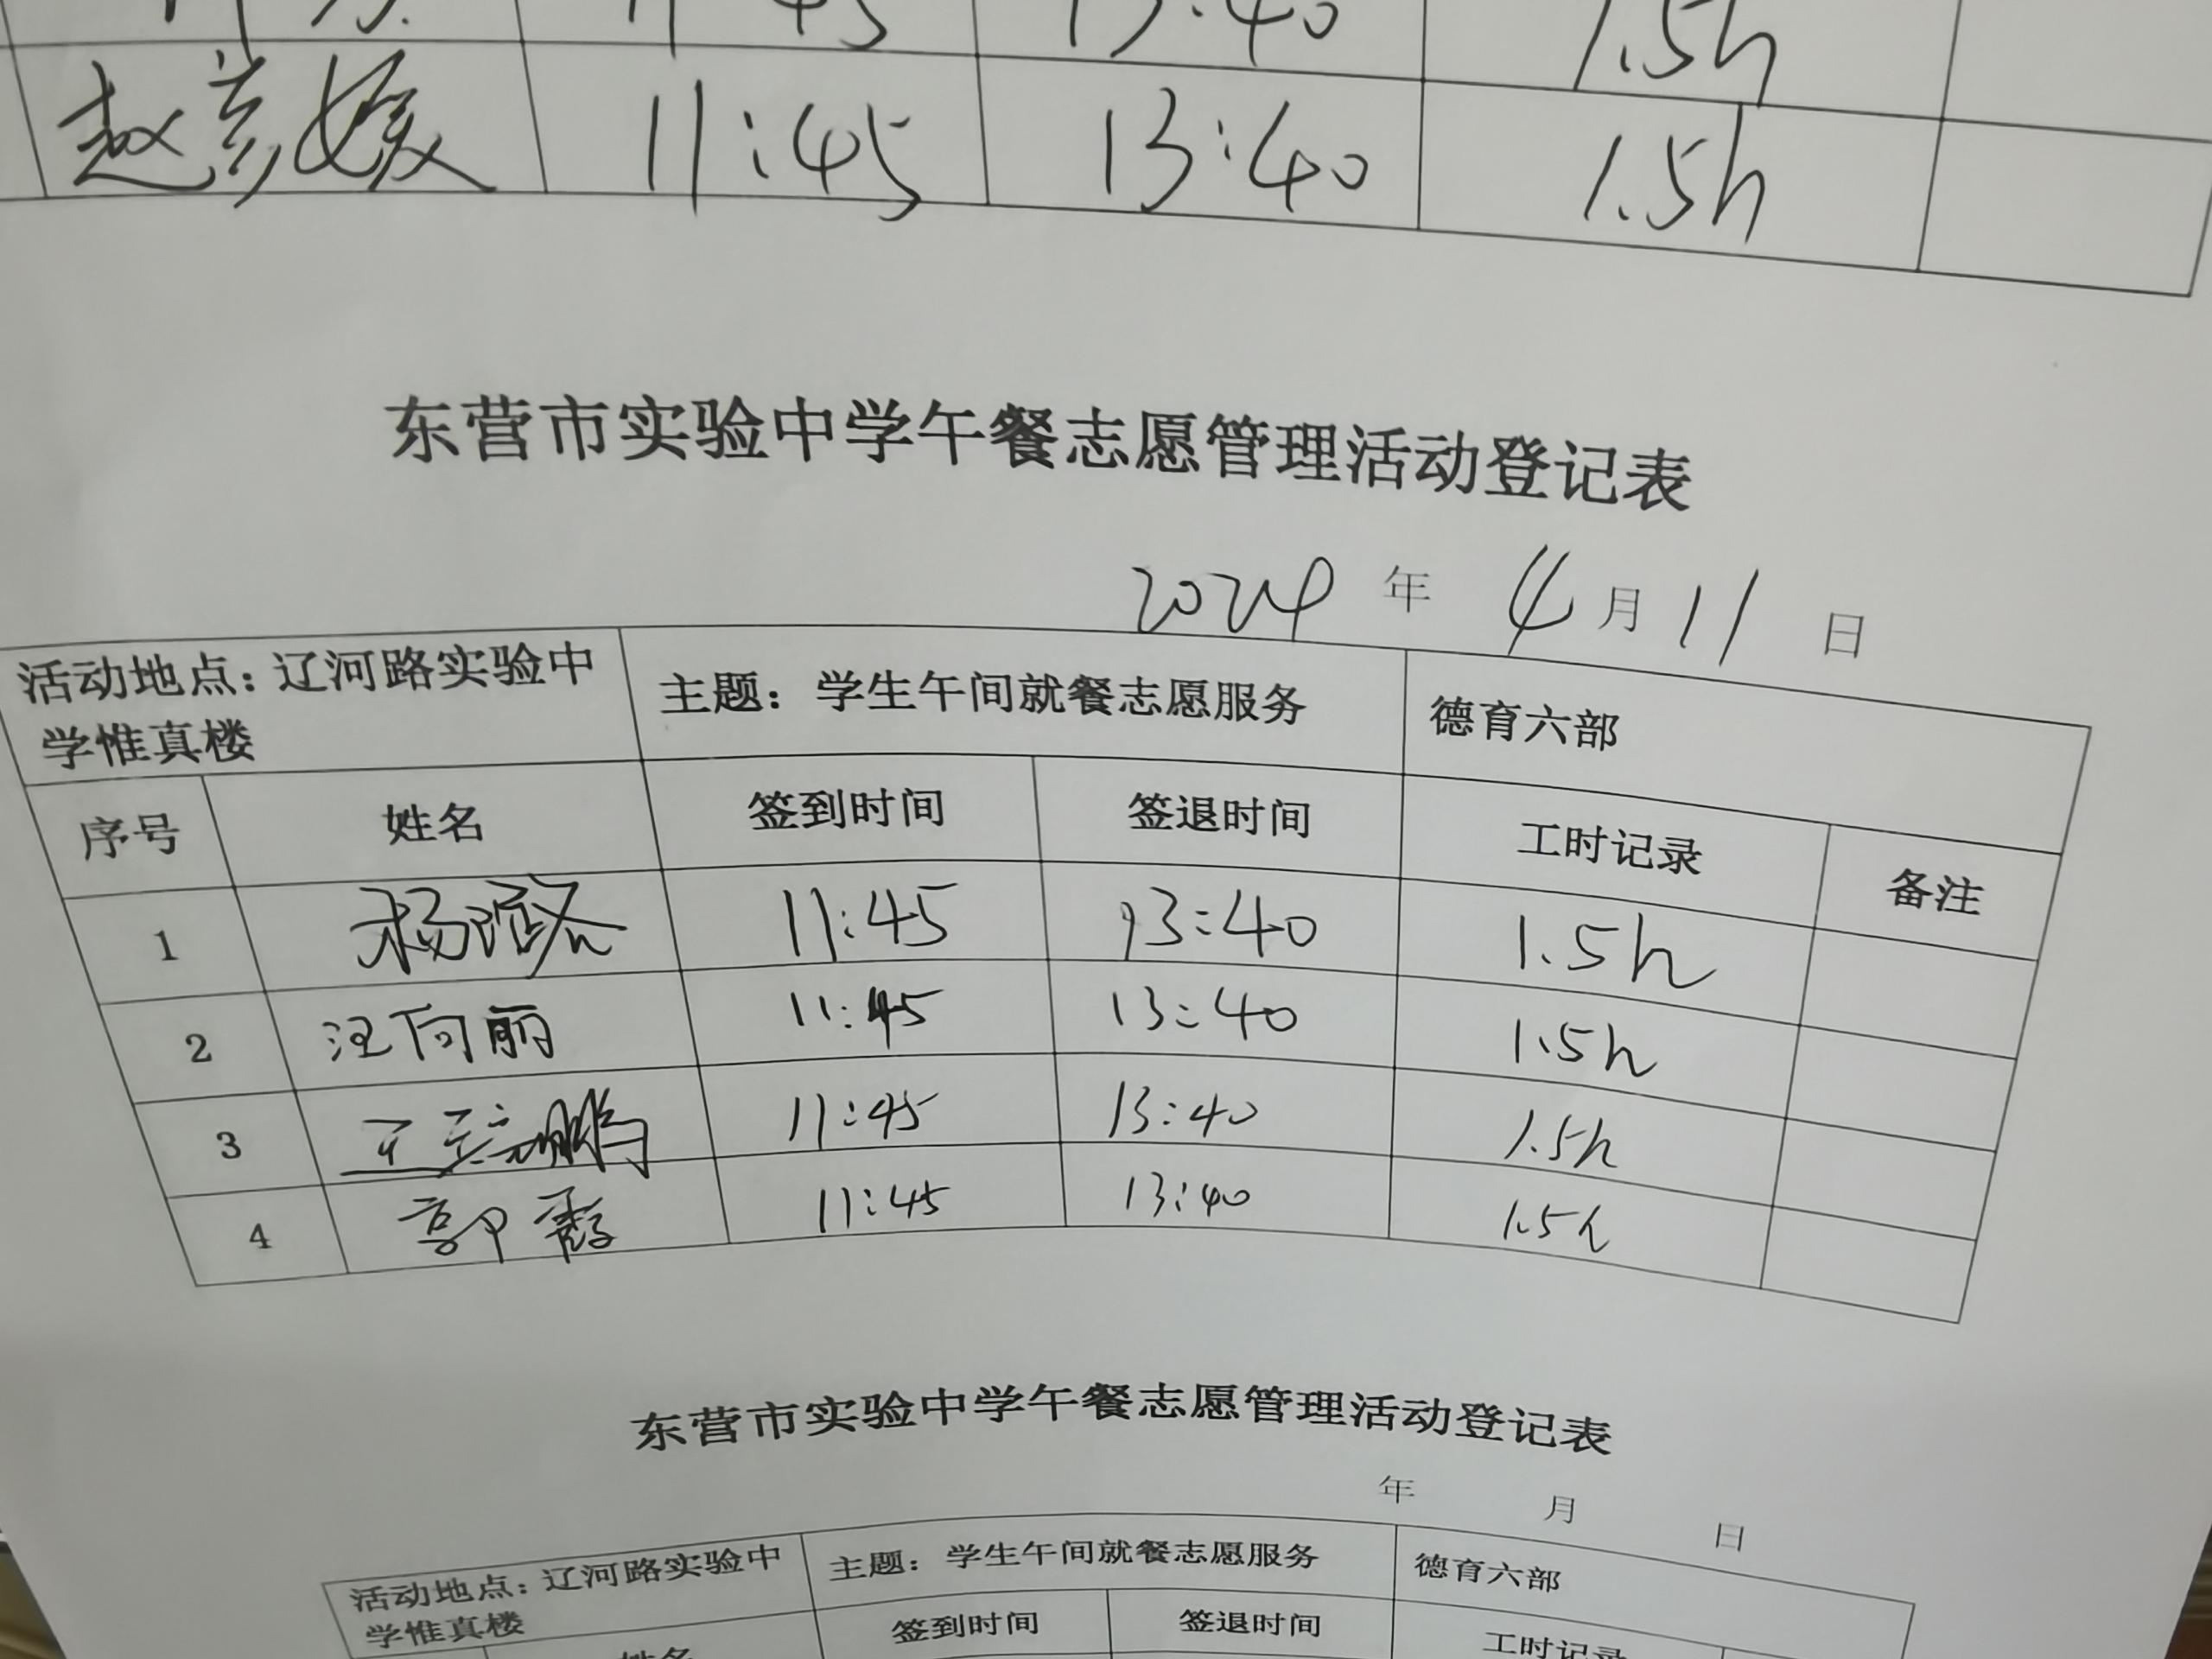 11:45 13:40 1.5h
赵彦媛 11:45 13:40 1.5h
东营市实验中学午餐志愿管理活动登记表
2024年4月11日
活动地点：辽河路实验中 主题：学生午间就餐志愿服务 德育六部
学惟真楼
序号 姓名 签到时间 签退时间 工时记录 备注
1 杨 11:45 13:40 1.5h
2 汪向丽 11:45 13:40 1.5h
3 鹏 11:45 13:40 1.5h
4 郭霞 11:45 13:40 1.5h
东营市实验中学午餐志愿管理活动登记表
年 月 日
活动地点：辽河路实验中 主题：学生午间就餐志愿服务 德育六部
学惟真楼
姓名 签到时间 签退时间 工时记录